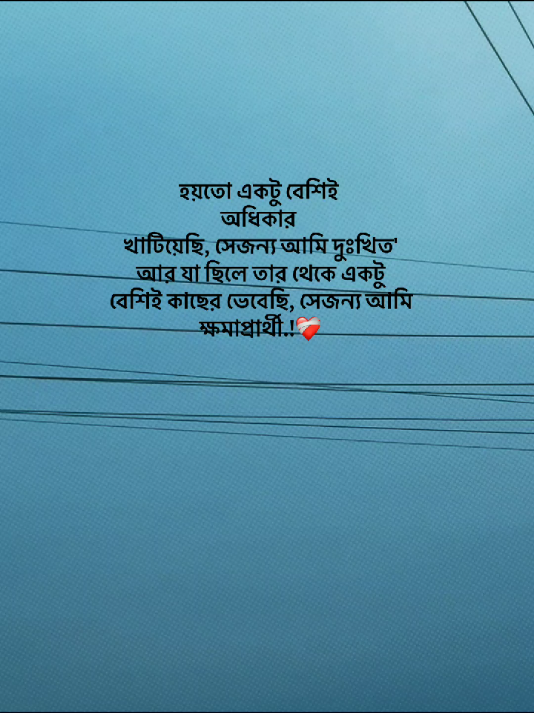 হয়তো একটু বেশিই
অধিকার
খাটিয়েছি, সেজন্য আমি দুঃখিত'
আর যা ছিলে তার থেকে একটু
বেশিই কাছের ভেবেছি, সেজন্য আমি
ক্ষমাপ্রার্থী.!❤️‍🩹